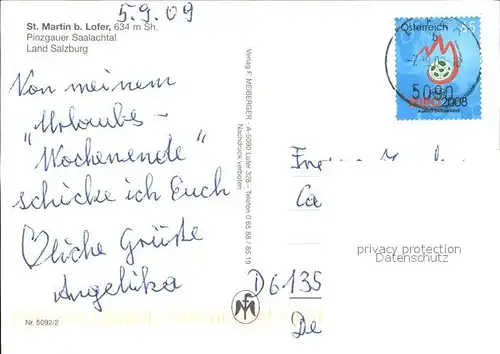 5.9.09
St. Martin b. Lofer, 634 m Sh.
Pinzgauer Saalachtal
Land Salzburg
Von meinem
"Urlaubs-
Wochenende"
schicke ich Euch
♡liche Grüße
Angelika
Nr. 5092/2
Verlag F. MEIBERGER - A-5090 Lofer 328 - Telefon 0 65 88 / 85 19
Nachdruck verboten
Österreich 65
5090
EURO 2008
Ca
D6135
De
privacy protection
Datenschutz